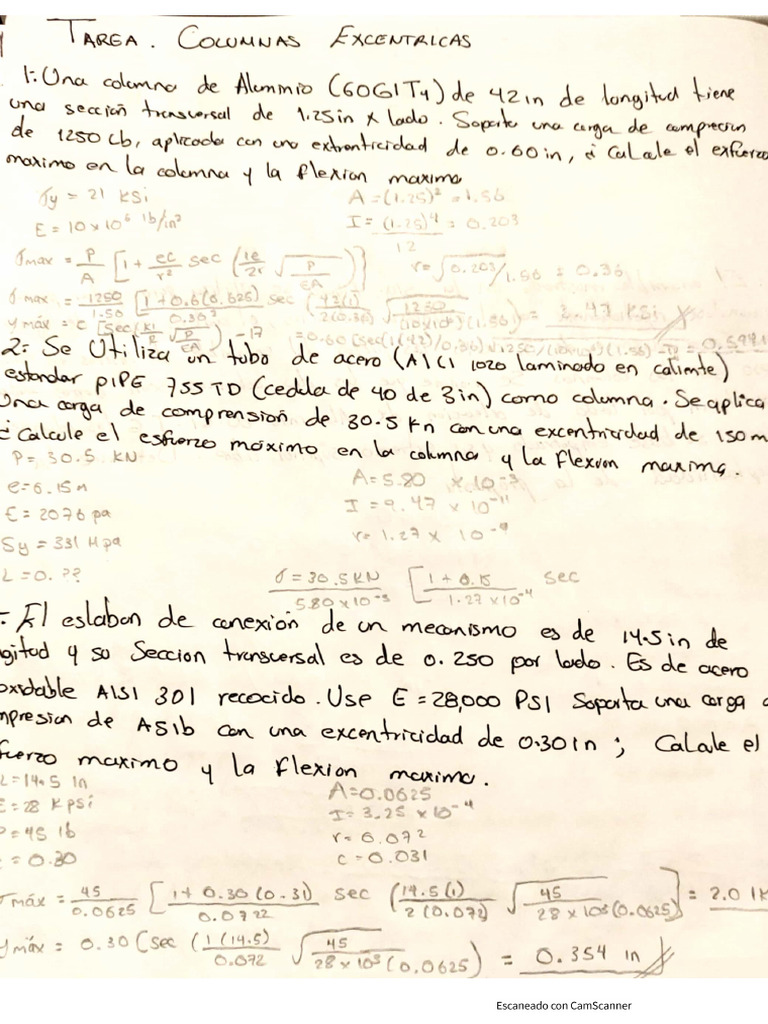 TAREA. COLUMNAS EXCENTRICAS
1: Una columna de Aluminio (6061T4) de 42in de longitud tiene
una sección transversal de 1.25in x lado. Soporta una carga de compresion
de 1250 Lb, aplicada con una extrentricidad de 0.60in, ¿ Calcule el esfuerzo
maximo en la columna y la flexion maxima
σy = 21 KSi
A = (1.25)² = 1.56
E = 10 x 10⁶ lb/in²
I = (1.25)⁴/12 = 0.203
σmax = P/A [1 + ec/r² sec (le/2r √P/EA)]
r = √0.203/1.56 = 0.36
σ max = 1250/1.56 [1+0.6(0.625)/0.36² sec (42(1)/2(0.36) √1250/(10x10⁶)(1.56) = 3.47 KSi
y máx = c [sec(kl/R √P/EA) -1]
= 0.60 (sec(1(42)/0.36) √1250/(10x10⁶)(1.56) = 0.5971
2: Se Utiliza un tubo de acero (AICI 1020 laminado en caliente)
estandar PIPE 75STD (cedula de 40 de 3in) como columna. Se aplica
Una carga de compresion de 30.5 Kn con una excentricidad de 150 m
¿ Calcule el esfuerzo máximo en la columna y la flexion maxima.
P = 30.5 KN
A = 5.80 x 10⁻³
e = 0.15m
I = 9.47 x 10⁻¹¹
E = 2076 pa
r = 1.27 x 10⁻⁹
Sy = 331 Mpa
L = 0. ??
σ = 30.5KN/5.80x10⁻³ [1 + 0.15/1.27x10⁻⁴ sec
El eslabon de conexión de un mecanismo es de 14.5in de
gitud y su Seccion transversal es de 0.250 por lado. Es de acero
oxidable AISI 301 recocido. Use E = 28,000 PSI Soporta una carga
mpresion de 45lb con una excentricidad de 0.30in ; Calcule el
fuerzo maximo y la flexion maxima.
L = 14.5 in
A = 0.0625
E = 28 Kpsi
I = 3.25 x 10⁻⁴
P = 45 lb
r = 0.072
= 0.30
c = 0.031
σmáx = 45/0.0625 [1 + 0.30(0.31)/0.0722 sec (14.5(1)/2(0.072) √45/28x10³(0.0625)] = 2.01K
ymáx = 0.30 (sec (1(14.5)/0.072 √45/28x10³(0.0625)) = 0.354 in
Escaneado con CamScanner